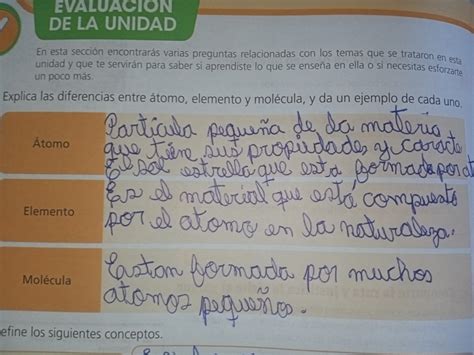 EVALUACIÓN
DE LA UNIDAD
En esta sección encontrarás varias preguntas relacionadas con los temas que se trataron en esta
unidad y que te servirán para saber si aprendiste lo que se enseña en ella o si necesitas esforzarte
un poco más.
Explica las diferencias entre átomo, elemento y molécula, y da un ejemplo de cada uno.
Átomo
Particula pequeña de da materia
que tien sus propiidades y caracte
El sol estrella que esta formada por at
Elemento
Es el material que está compuesto
por el atomo en la naturaleza.
Molécula
Eastan formada por muchos
atomos pequeños.
efine los siguientes conceptos.